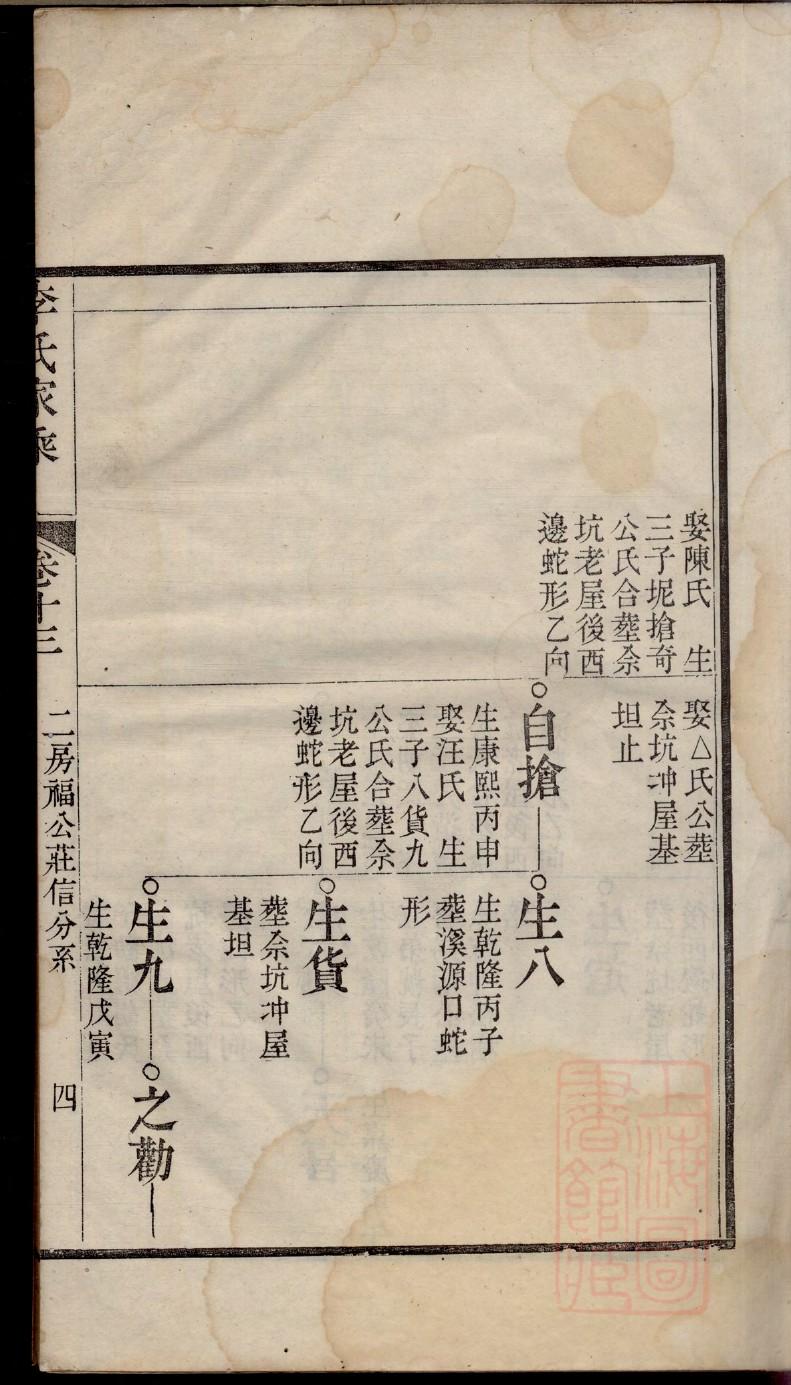 娶陳氏　生
三子坭搶奇
公氏合塟佘
坑老屋後西
邊蛇形乙向
娶△氏公塟
佘坑冲屋基
坦止
自搶
生康熙丙申
娶汪氏　生
三子八貨九
公氏合塟佘
坑老屋後西
邊蛇形乙向
生八
生乾隆丙子
塟溪源口蛇
形
生貨
塟佘坑冲屋
基坦
生九
生乾隆戊寅
之勸
李氏家乘
卷十三
二房福公莊信分系
四
上海圖
書館藏